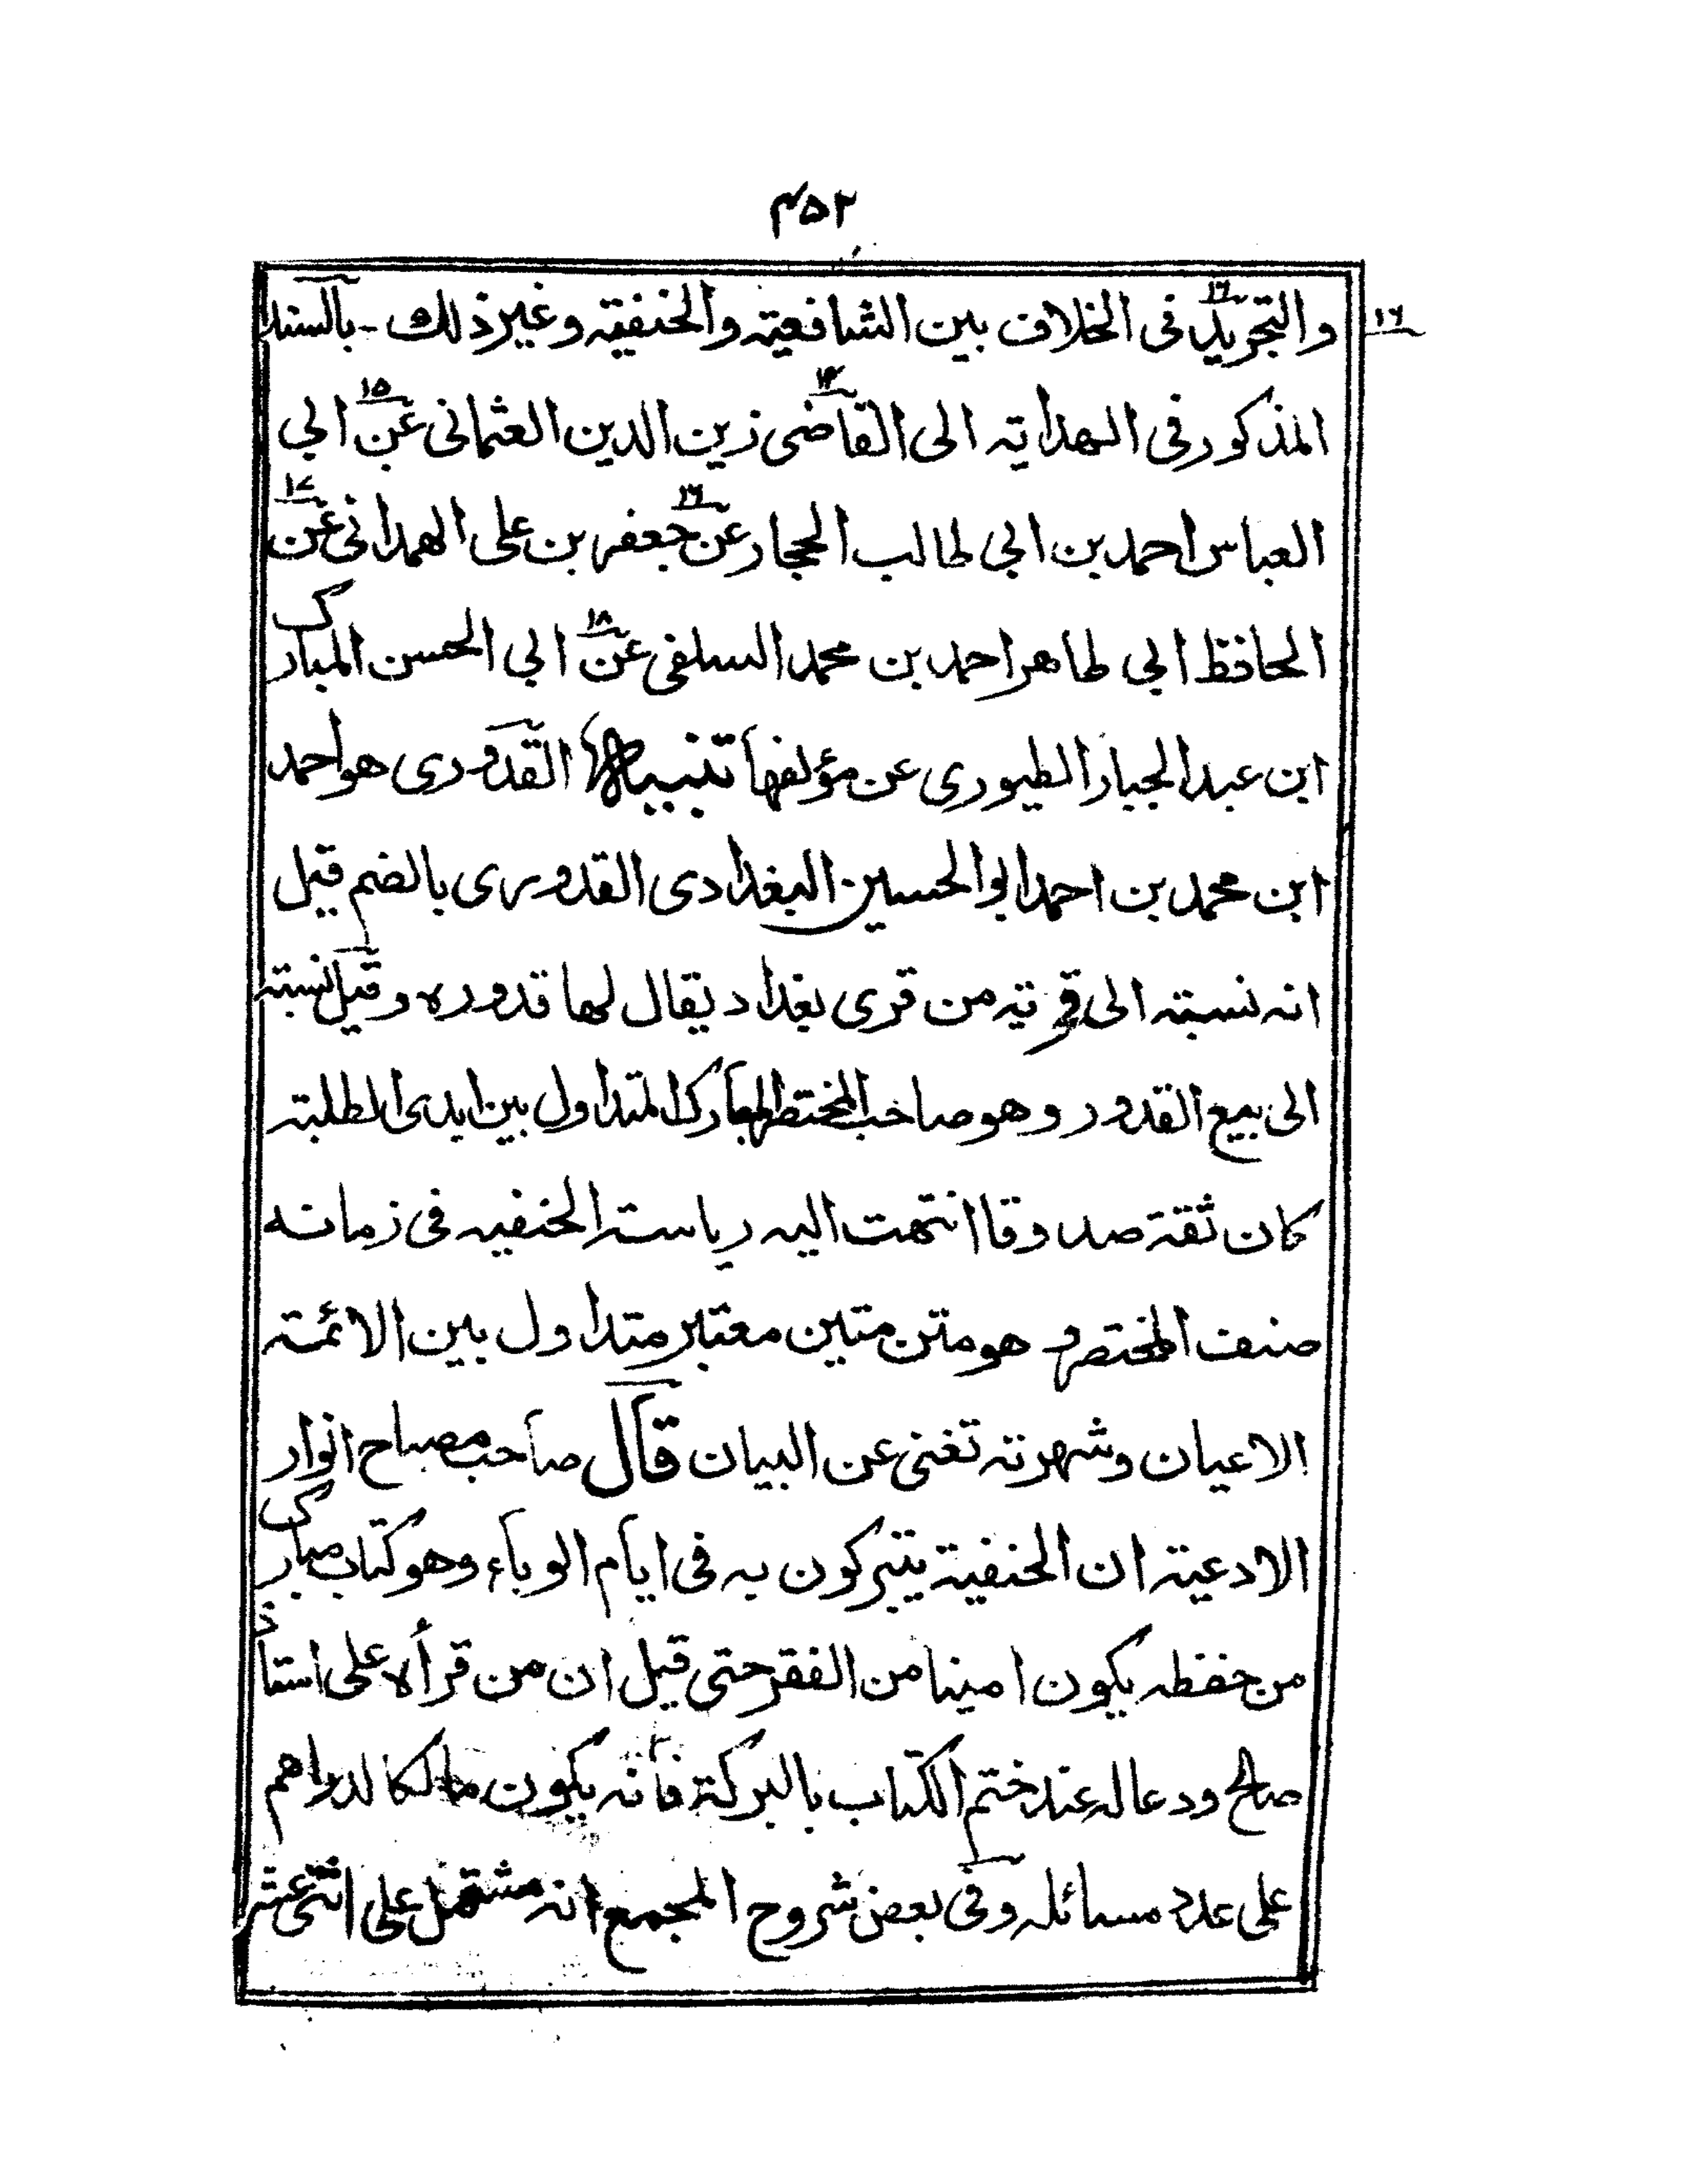 ۴۵۲
والتجريد فى الخلاف بين الشافعية والحنفية وغير ذلك - بالسند
۱۶
المذكور فى الهداية الى القاضى زين الدين العثمانى عن ابي
العباس احمد بن ابي طالب الحجار عن جعفر بن على الهمدانى عن
الحافظ ابي طاهر احمد بن محمد السلفى عن ابي الحسن المبارك
ابن عبد الجبار الطيورى عن مؤلفها تنبيه القدورى هو احمد
ابن محمد بن احمد ابو الحسين البغدادى القدورى بالضم قيل
انه نسبته الى قرية من قرى بغداد يقال لها قدوره وقيل نسبته
الى بيع القدور وهو صاحب المختصر المبارك المتداول بين ايدى الطلبة
كان ثقة صدوقا انتهت اليه رياسة الحنفيه فى زمانه
صنف المختصر وهو متن متين معتبر متداول بين الائمة
الاعيان وشهرته تغنى عن البيان قال صاحب مصباح انوار
الادعية ان الحنفية يتبركون به فى ايام الوباء وهو كتاب مبارك
من حفظه يكون امينا من الفقر حتى قيل ان من قرأه على استاذ
صالح ودعا له عند ختم الكتاب بالبركة فانه يكون مالكا لدراهم
على عدد مسائله وفى بعض شروح المجمع انه مشتمل على اثنى عشر